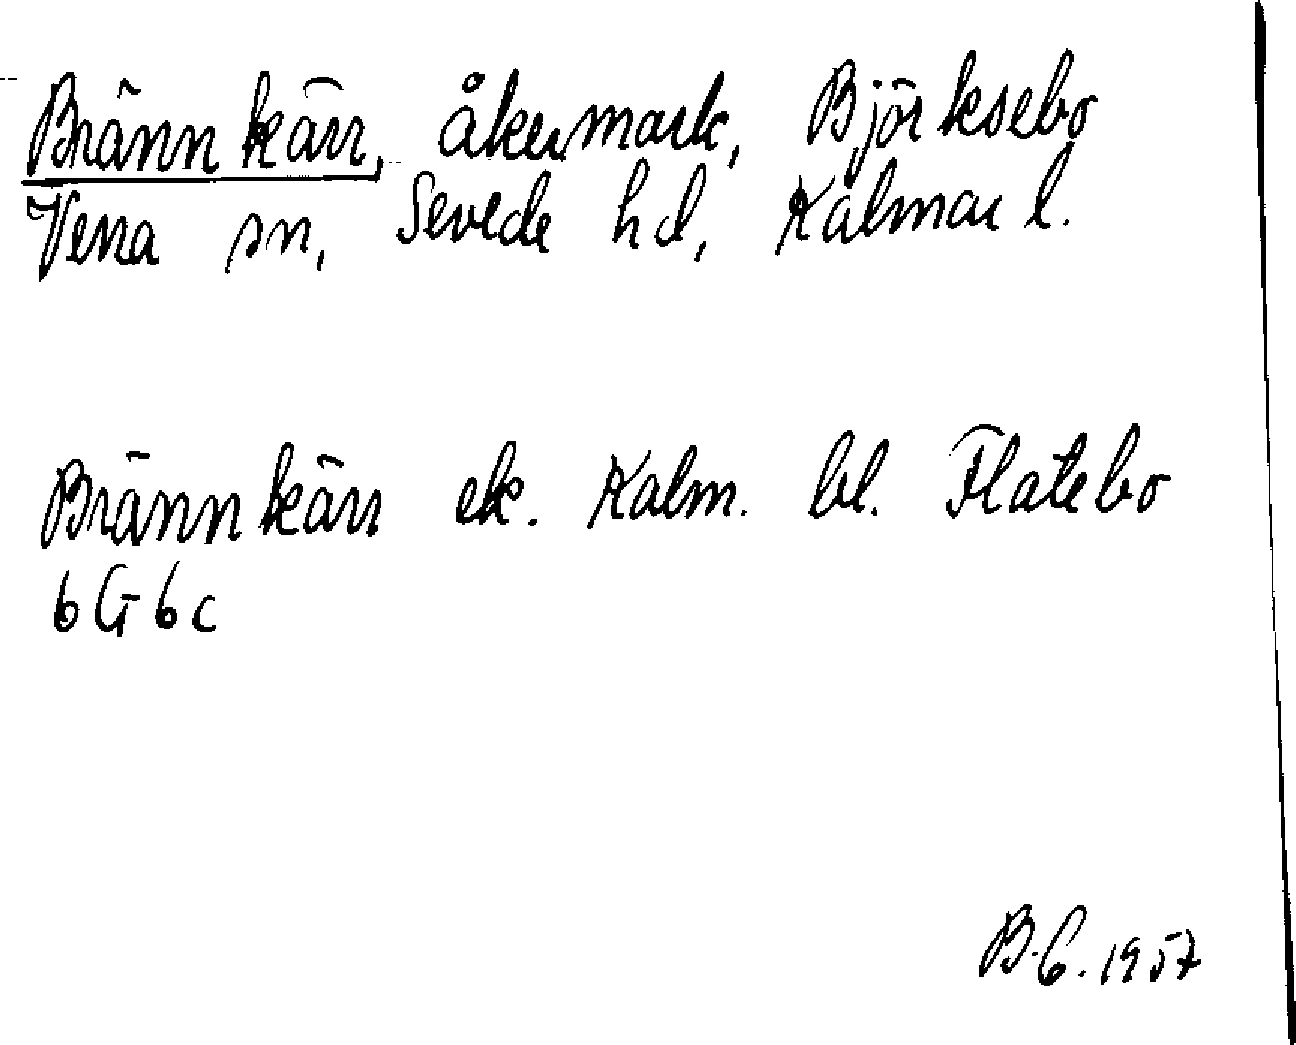 Brännkärr, åkermark, Björksebo
Vena sn, Sevede hd, Kalmar l.
Brännkärr ek. Kalm. bl. Flatebo
6G6c
B.G. 1957